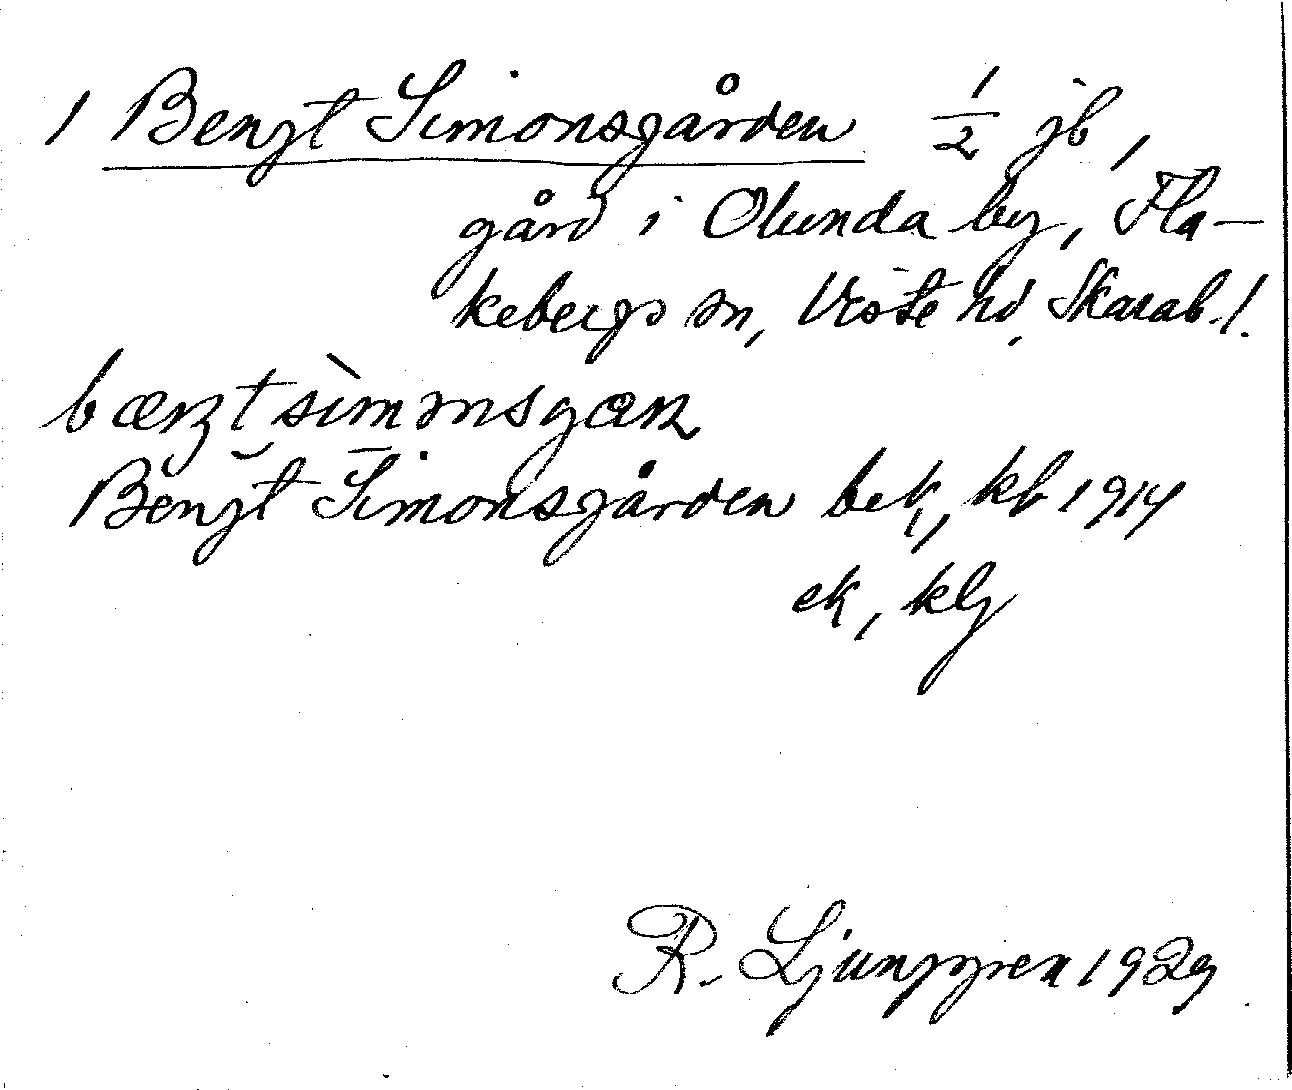 1 Bengt Simonsgården 1/2 jb,
gård i Olunda by, Fla-
kebergs sn, Viste hd, Skarab. l.
Bengt Simonsgården bek, kb 1914
ek, klj
R. Ljunggren 1929